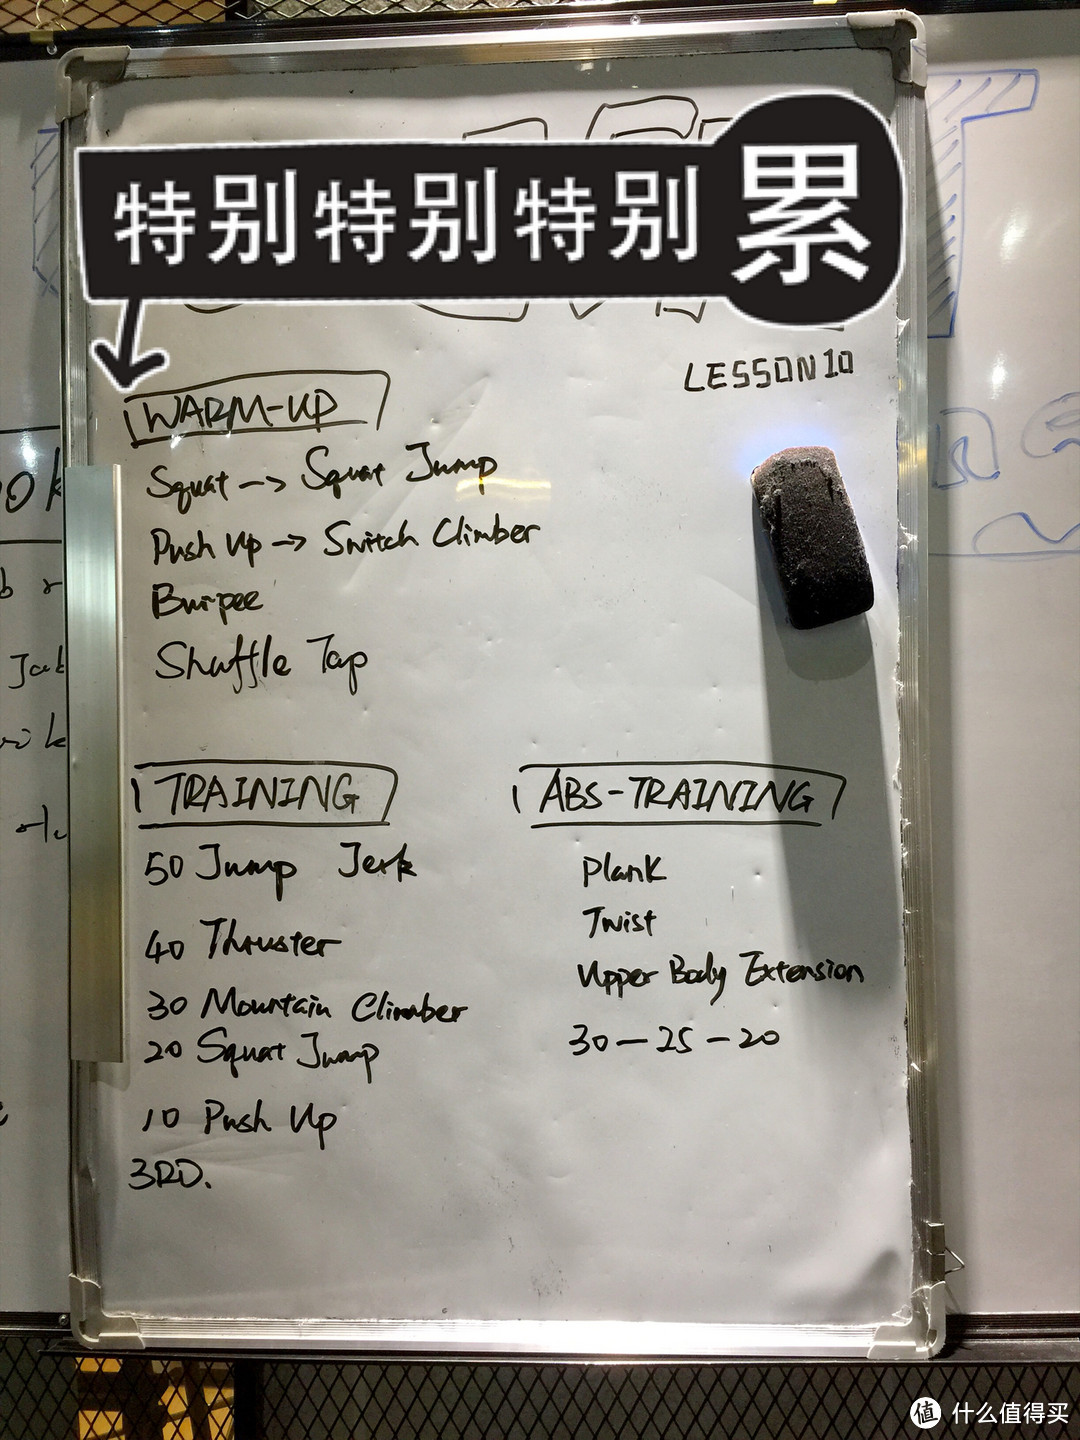 特别特别特别累
LESSON 10
WARM-UP
Squat --> Squat Jump
Push Up --> Switch Climber
Burpee
Shuffle Tap
TRAINING
50 Jump Jerk
40 Thruster
30 Mountain Climber
20 Squat Jump
10 Push Up
3RD.
ABS-TRAINING
Plank
Twist
Upper Body Extension
30 — 25 — 20
值 什么值得买